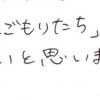 ごもりたち」
いと思いま